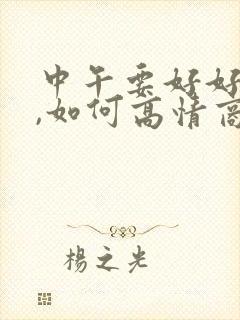 中午要好好
,如何高情商
楊之光